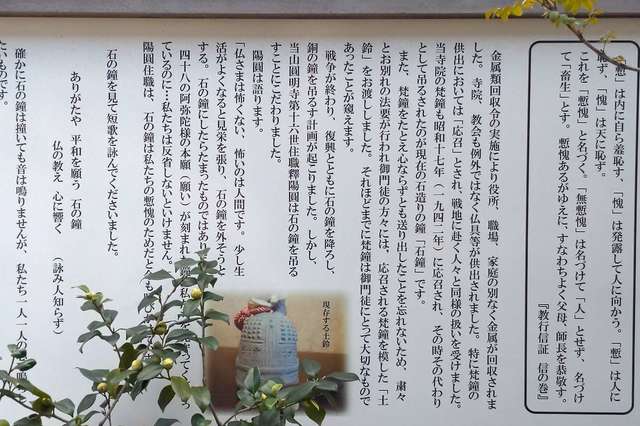 「慙」は内に自ら羞恥す、「愧」は発露して人に向かう。「慙」は人に
恥す、「愧」は天に恥す。
これを「慙愧」と名づく。「無慙愧」は名づけて「人」とせず、名づけ
て「畜生」とす。慙愧あるがゆえに、すなわちよく父母、師長を恭敬す。
『教行信証 信の巻』
金属類回収令の実施により役所、職場、家庭の別なく金属が回収されま
した。寺院、教会も例外ではなく仏具等が供出されました。特に梵鐘の
供出においては「応召」とされ、戦地に赴く人々と同様の扱いを受けました。
当寺院の梵鐘も昭和十七年（一九四二年）に応召され、その時その代わり
として吊るされたのが現在の石造りの鐘「石鐘」です。
また、梵鐘をたとえ心ならずとも送り出したことを忘れないため、粛々
とお別れの法要が行われ御門徒の方々には、応召される梵鐘を模した「土
鈴」をお渡ししました。それほどまでに梵鐘は御門徒にとって大切なもので
あったことが窺えます。
戦争が終わり、復興とともに石の鐘を降ろし、
銅の鐘を吊るす計画が起こりました。しかし、
当山圓明寺第十六世住職釋陽圓は石の鐘を吊る
すことにこだわりました。
陽圓は語ります。
「仏さまは怖くない、怖いのは人間です。少し生
活がよくなると見栄を張り、石の鐘を外そうと
する。石の鐘にしたらたまったものではあり
四十八の阿弥陀様の本願（願い）が刻まれ
ているのに…私たちは反省しないといけません。
陽圓住職は、石の鐘は私たちの慙愧のためだと
石の鐘を見て短歌を詠んでくださいました。
ありがたや 平和を願う 石の鐘
仏の教え 心に響く （詠み人知らず）
確かに石の鐘は撞いても音は鳴りませんが、私たち一人一人の
たいものです。
現存する土鈴